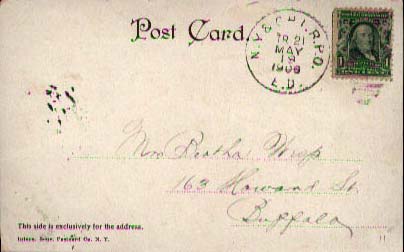 Post Card.
N.Y. & CHI. R.P.O.
TR 21
MAY
19
1906
E.D.
1 1
Mrs Bertha
163 Howard St.
Buffalo
This side is exclusively for the address.
Intern. Souv. Postcard Co. N. Y.
11